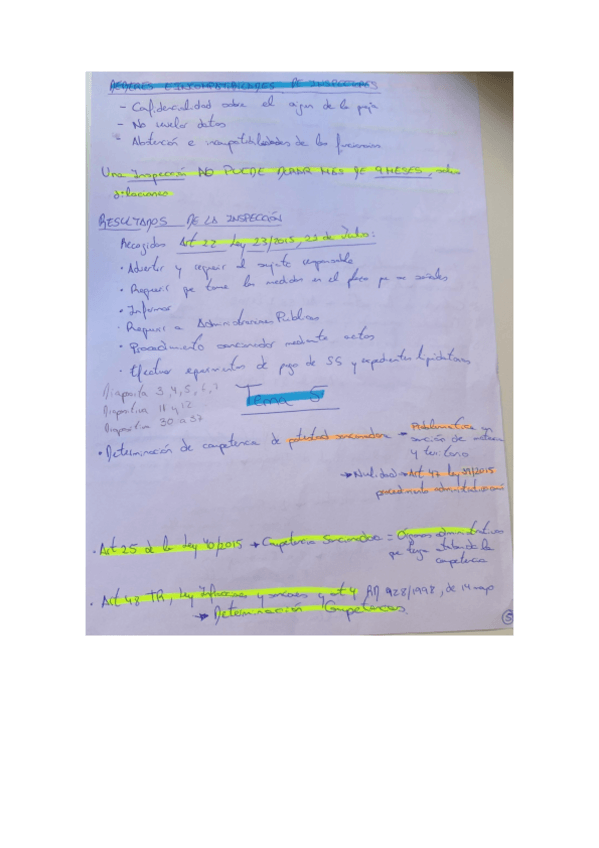 DEBERES E INCOMPATIBILIDADES DE INSPECTORES
- Confidencialidad sobre el origen de la queja
- No revelar datos
- Abstención e incompatibilidades de los funcionarios
Una Inspección NO PUEDE DURAR MAS DE 9 MESES, salvo
dilaciones
RESULTADOS DE LA INSPECCIÓN
Recogidos Art 22 Ley 23/2015, 21 de Julio:
• Advertir y requerir al sujeto responsable
• Requerir que tome las medidas en el plazo que se señale
• Informar
• Requerir a Administraciones Públicas
• Procedimiento sancionador mediante actas
• Efectuar requerimientos de pago de SS y expedientes liquidatorios
Diapositiva 3, 4, 5, 6, 7
Diapositiva 11 y 12
Diapositiva 30 a 37
Tema 5
• Determinación de competencia de potestad sancionadora → Problemática en
sanción de materia
y territorio
→ Nulidad → Art 47 Ley 39/2015
procedimiento administrativo común
• Art 25 de la Ley 40/2015 → Competencia Sancionadora = Órganos administrativos
que tenga atribuida la
competencia
• Art 48 TR, Ley Infracciones y sanciones y art 4 RD 928/1998, de 14 mayo
→ Determinación Competencias
5